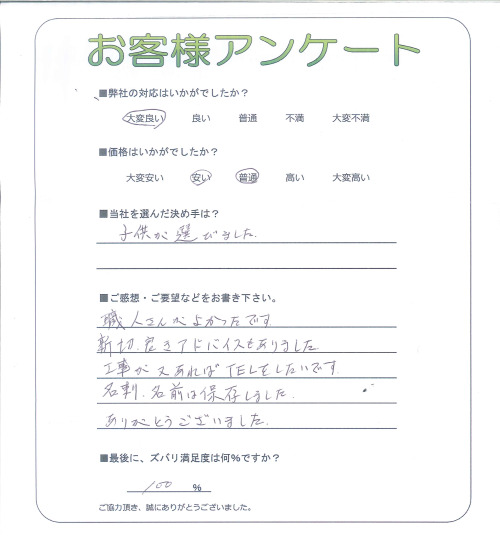 お客様アンケート
■弊社の対応はいかがでしたか？
大変良い 良い 普通 不満 大変不満
■価格はいかがでしたか？
大変安い 安い 普通 高い 大変高い
■当社を選んだ決め手は？
子供が選びました.
■ご感想・ご要望などをお書き下さい。
職人さんがよかったです.
新切.良きアドバイスもありました
工事が又あればTELをしたいです.
名刺.名前は保存しました.
ありがとうございました.
■最後に、ズバリ満足度は何％ですか？
100 %
ご協力頂き、誠にありがとうございました。